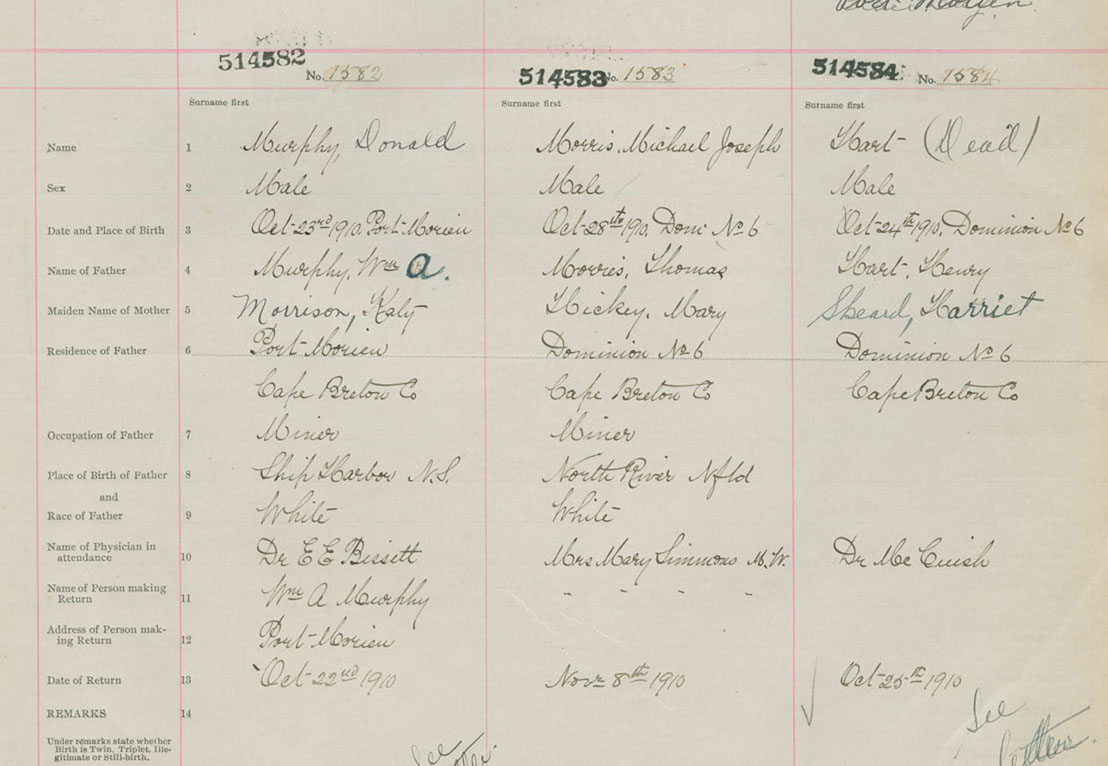 514582 No. 1582 514583 No. 1583 514584 No. 1584
Surname first Surname first Surname first
Name 1 Murphy, Donald Morris, Michael Joseph Hart (Dead)
Sex 2 Male Male Male
Date and Place of Birth 3 Oct 23rd 1910, Port Morien Oct 28th 1910, Dom: No 6 Oct 24th 1910, Dominion No 6
Name of Father 4 Murphy, Wm A. Morris, Thomas Hart, Henry
Maiden Name of Mother 5 Morrison, Katy Hickey, Mary Sheard, Harriet
Residence of Father 6 Port Morien Dominion No 6 Dominion No 6
Cape Breton Co Cape Breton Co Cape Breton Co
Occupation of Father 7 Miner Miner
Place of Birth of Father 8 Ship Harbor N.S. North River Nfld
and
Race of Father 9 White White
Name of Physician in
attendance 10 Dr E E Bissett Mrs Mary Simmons M.W. Dr McCuish
Name of Person making
Return 11 Wm A Murphy " " " "
Address of Person mak-
ing Return 12 Port Morien
Date of Return 13 Oct 22nd 1910 Novr 8th 1910 Oct 25th 1910
REMARKS 14
See
Under remarks state whether
Birth is Twin, Triplet, Ille-
gitimate or Still-birth.
See